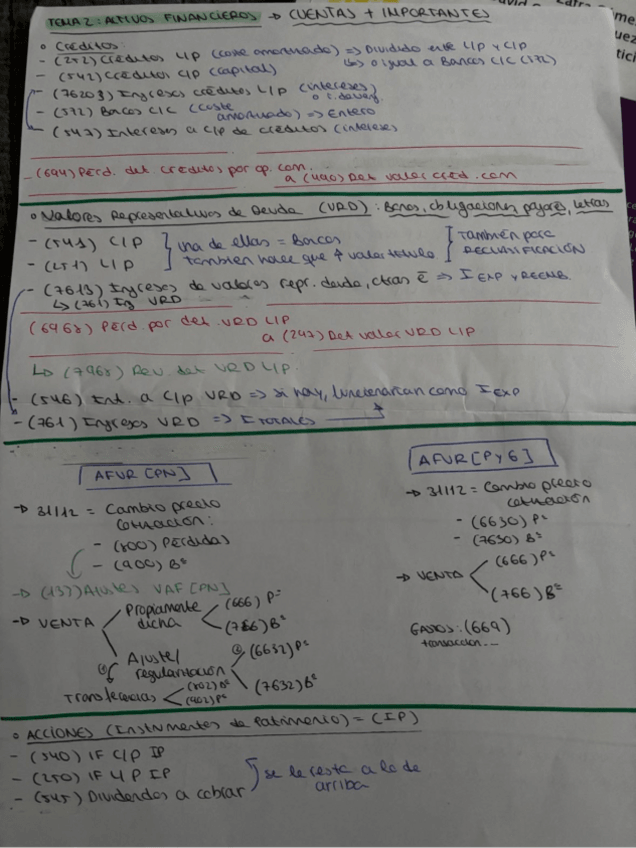 TEMA 2: ACTIVOS FINANCIEROS → CUENTAS + IMPORTANTES
○ Créditos:
- (252) Créditos L/P (coste amortizado) => Dividido entre L/P y C/P
↳ o igual a Bancos C/C (572)
- (542) Créditos C/P (capital)
- (76203) Ingresos créditos L/P (intereses)
- (572) Bancos C/C (coste amortizado) => Entero
- (547) Intereses a C/P de créditos (intereses
- (694) Pérd. det. créditos por op. com.
a (490) Det valor créd. com
○ Valores Representativos de Deuda (VRD): Bonos, obligaciones, pagarés, letras
- (541) C/P
- (251) L/P
una de ellas = Bancos
también hace que ↑ valor título
También para RECLASIFICACIÓN
- (7613) Ingresos de valores repr. deuda, otras e => I EXP y REEMB.
↳ (761) Ig VRD
(6963) Pérd. por det. VRD L/P
a (297) Det valor VRD L/P
↳ (7963) Rev. det VRD L/P.
- (546) Int. a C/P VRD => si hay, funcionarían como I EXP
- (761) Ingresos VRD => I TOTALES
AFVR [PN]
→ 31/12 = Cambio precio cotización:
- (800) Pérdidas
- (900) Bº
→ (133) Ajustes VAF [PN]
→ VENTA
Propiamente dicha
(666) Pº
(766) Bº
Ajuste/ regularización
(6632) Pº
(7632) Bº
Transferencias
(802) Bº
(902) Pº
AFVR [PyG]
→ 31/12 = Cambio precio cotización
- (6630) Pº
- (7630) Bº
→ VENTA
(666) Pº
(766) Bº
GASTOS: (669)
transacción...
○ ACCIONES (Instrumentos de Patrimonio) = (IP)
- (540) IF C/P IP
- (250) IF L/P IP
- (545) Dividendos a cobrar
se le resta a lo de arriba